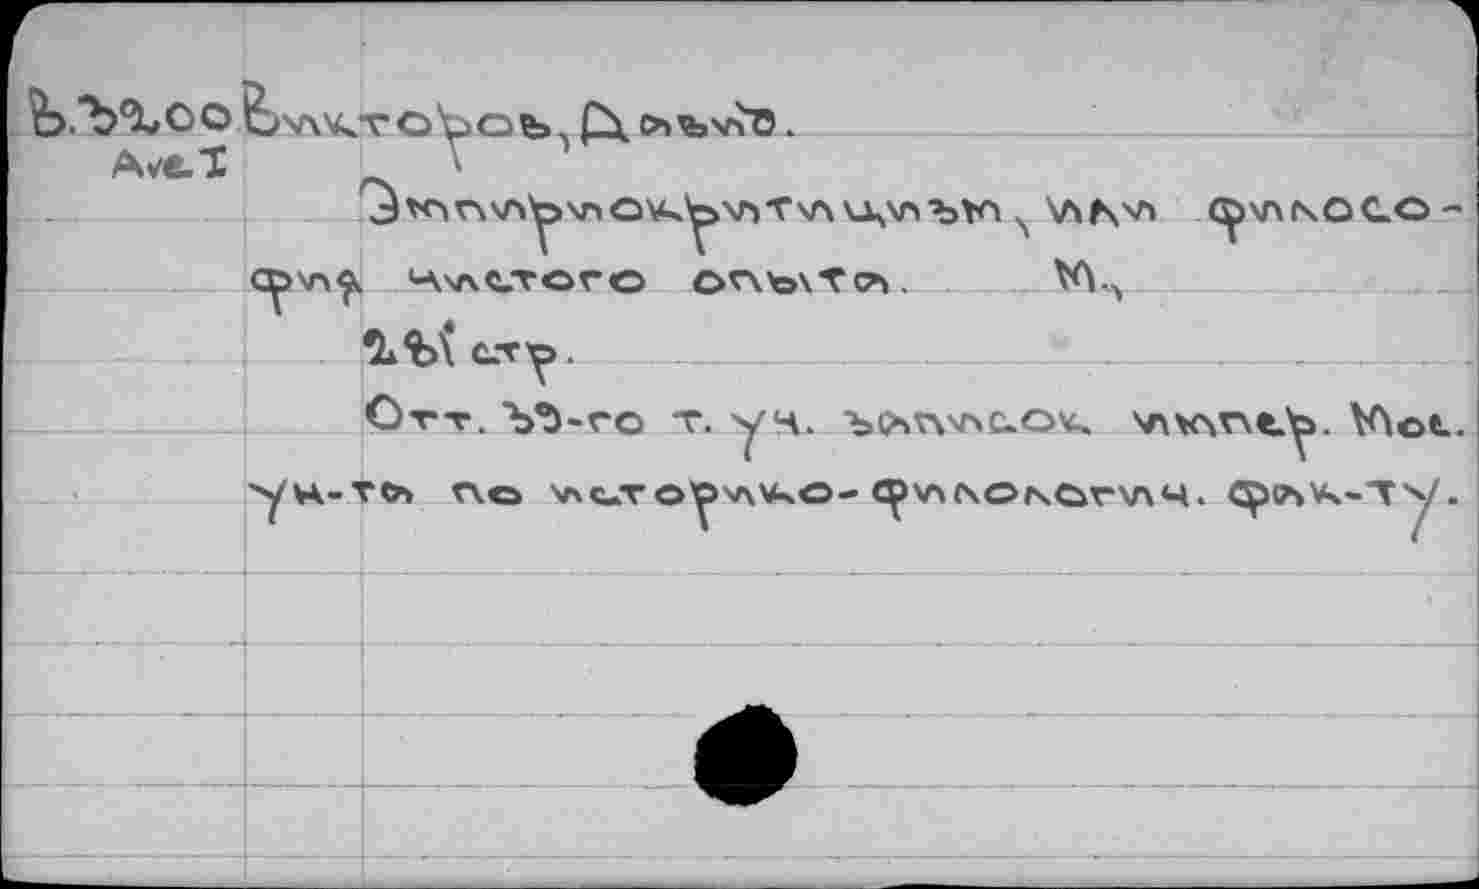 В.3200 Викторов, Давид.
Ave.I
Эмпириокритицизм, или филосо-
фия чистого опыта. М.,
231 стр.
Отт. 33-го т. уч. записок импер. Мос.
ун-та по историко-филологич. фак-ту.